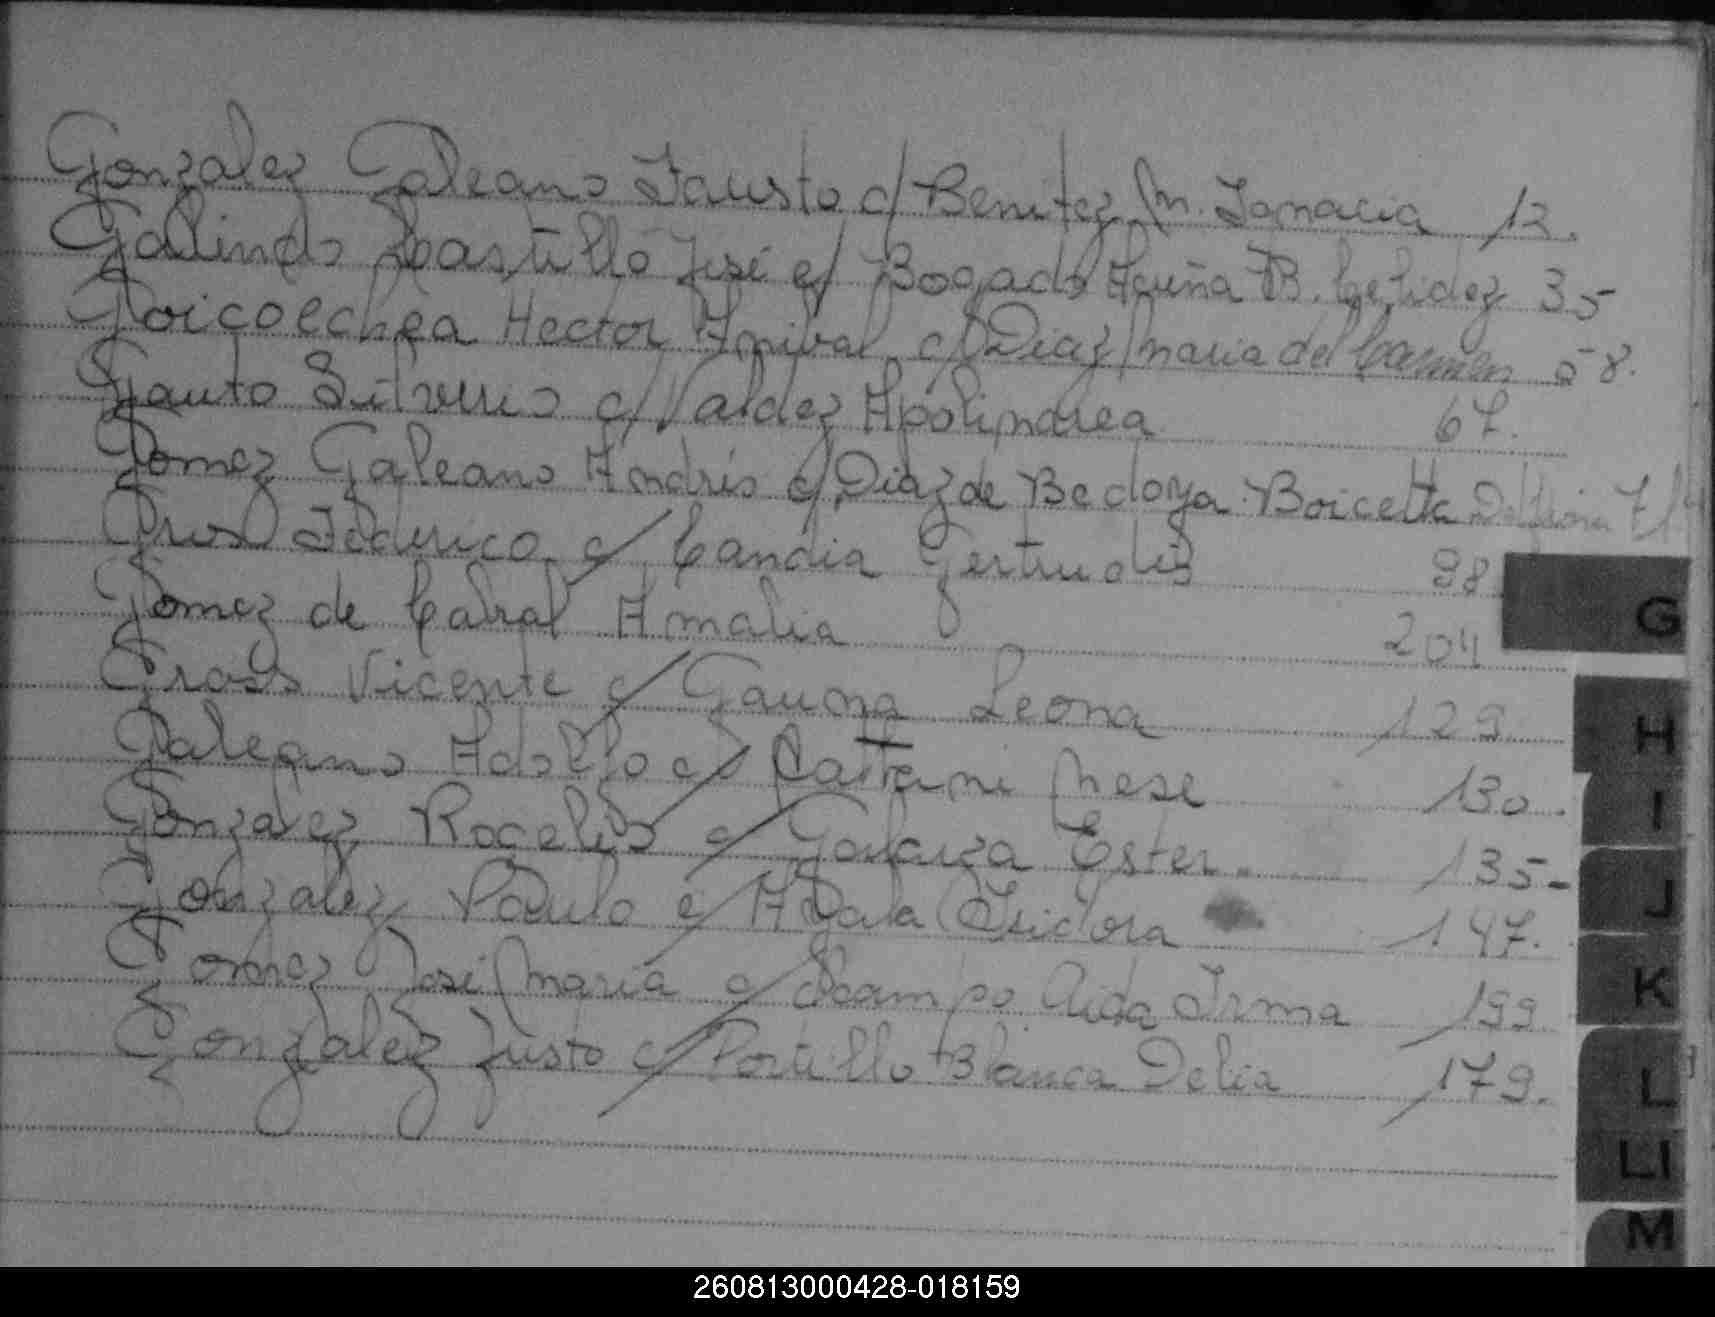 Gonzalez Galeano Fausto c/ Benitez M. Ignacia 12.
Galindo Castillo José c/ Bogado Acuña B. 35
Goicoechea Hector Anival c/ Diaz Maria del Carmen 58.
Gauto Silverio c/ Valdez Apolinarea 67.
Gomez Galeano Andrés c/ Diaz de Bedoya Boicetta Delfina
Gros Federico c/ Candia Gertrudis 98
Gomez de Cabral Amalia 204
Gross Vicente c/ Gauna Leona 129
Galeano Adolfo c/ Cattani Mese 130.
Gonzalez Rogelio c/ Galarza Ester. 135-
Gonzalez Paulo c/ Ayala Isidora 147.
Gomez José Maria c/ Ocampo Aida Irma 199
Gonzalez Justo c/ Portillo Blanca Delia 179.
G
H
I
J
K
L
Ll
M
260813000428-018159